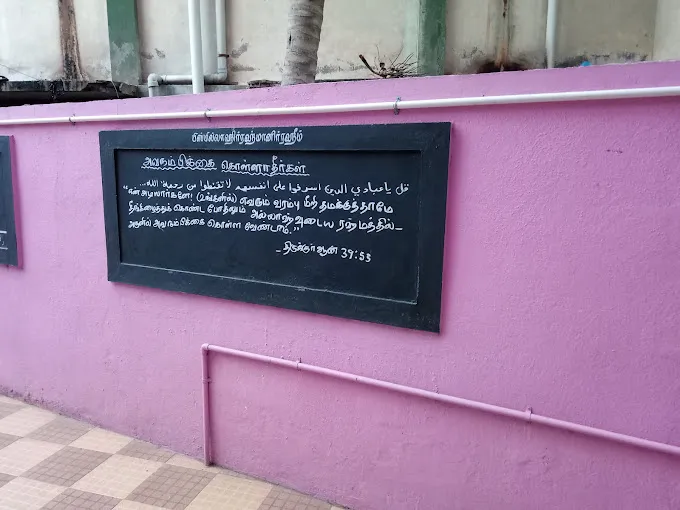 பிஸ்மில்லாஹிர்ரஹ்மானிர்ரஹீம்
அவநம்பிக்கை கொள்ளாதீர்கள்
قل ياعبادي الذين اسرفوا على انفسهم لا تقنطوا من رحمة الله...
"என் அடியார்களே! (உங்களில்) எவரும் வரம்பு மீறி தமக்குத்தாமே
தீங்கிழைத்துக் கொண்ட போதிலும் அல்லாஹ்வுடைய ரஹ்மத்தில் -
அருளில் அவநம்பிக்கை கொள்ள வேண்டாம்."
- திருக்குர்ஆன் 39:53